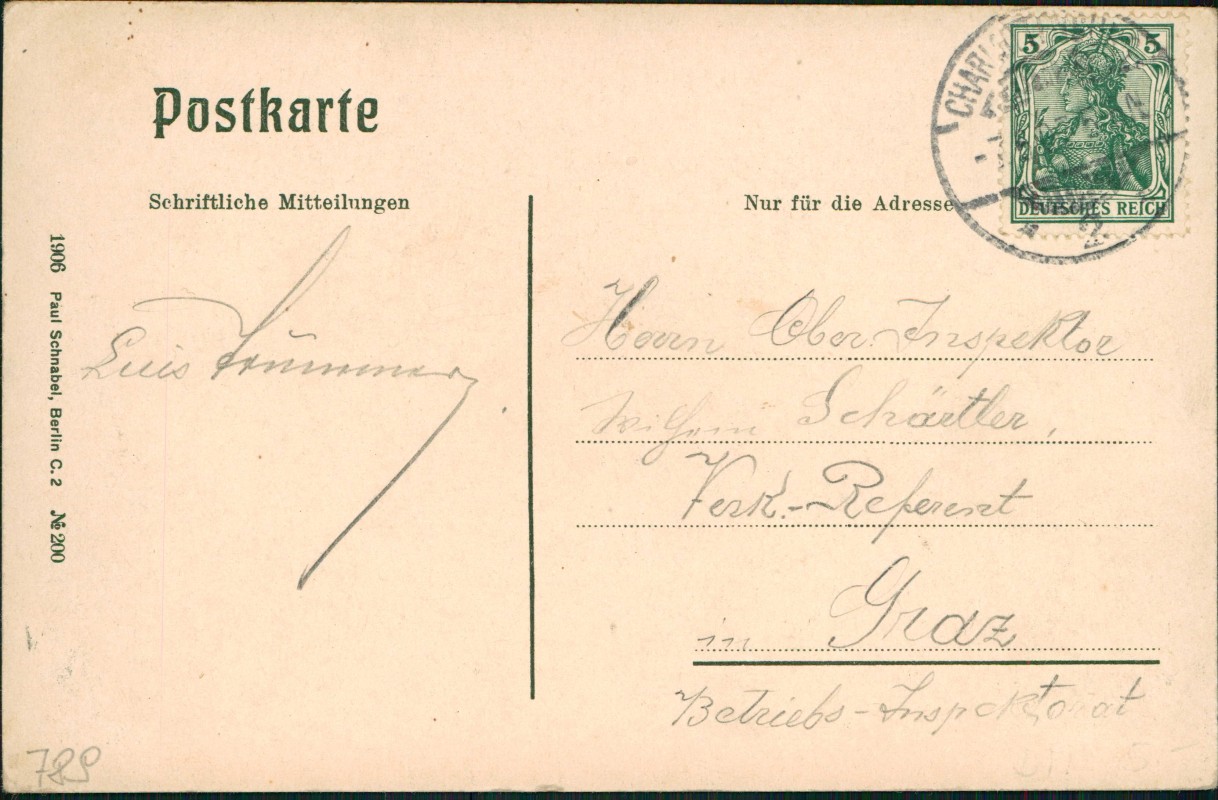 Postkarte
Schriftliche Mitteilungen
Nur für die Adresse
5 5
DEUTSCHES REICH
1906 Paul Schnabel, Berlin C. 2 № 200
Herrn Ober-Inspektor
Wilhelm Schärtler,
Verk.-Referent
in Graz
Betriebs-Inspektorat
789